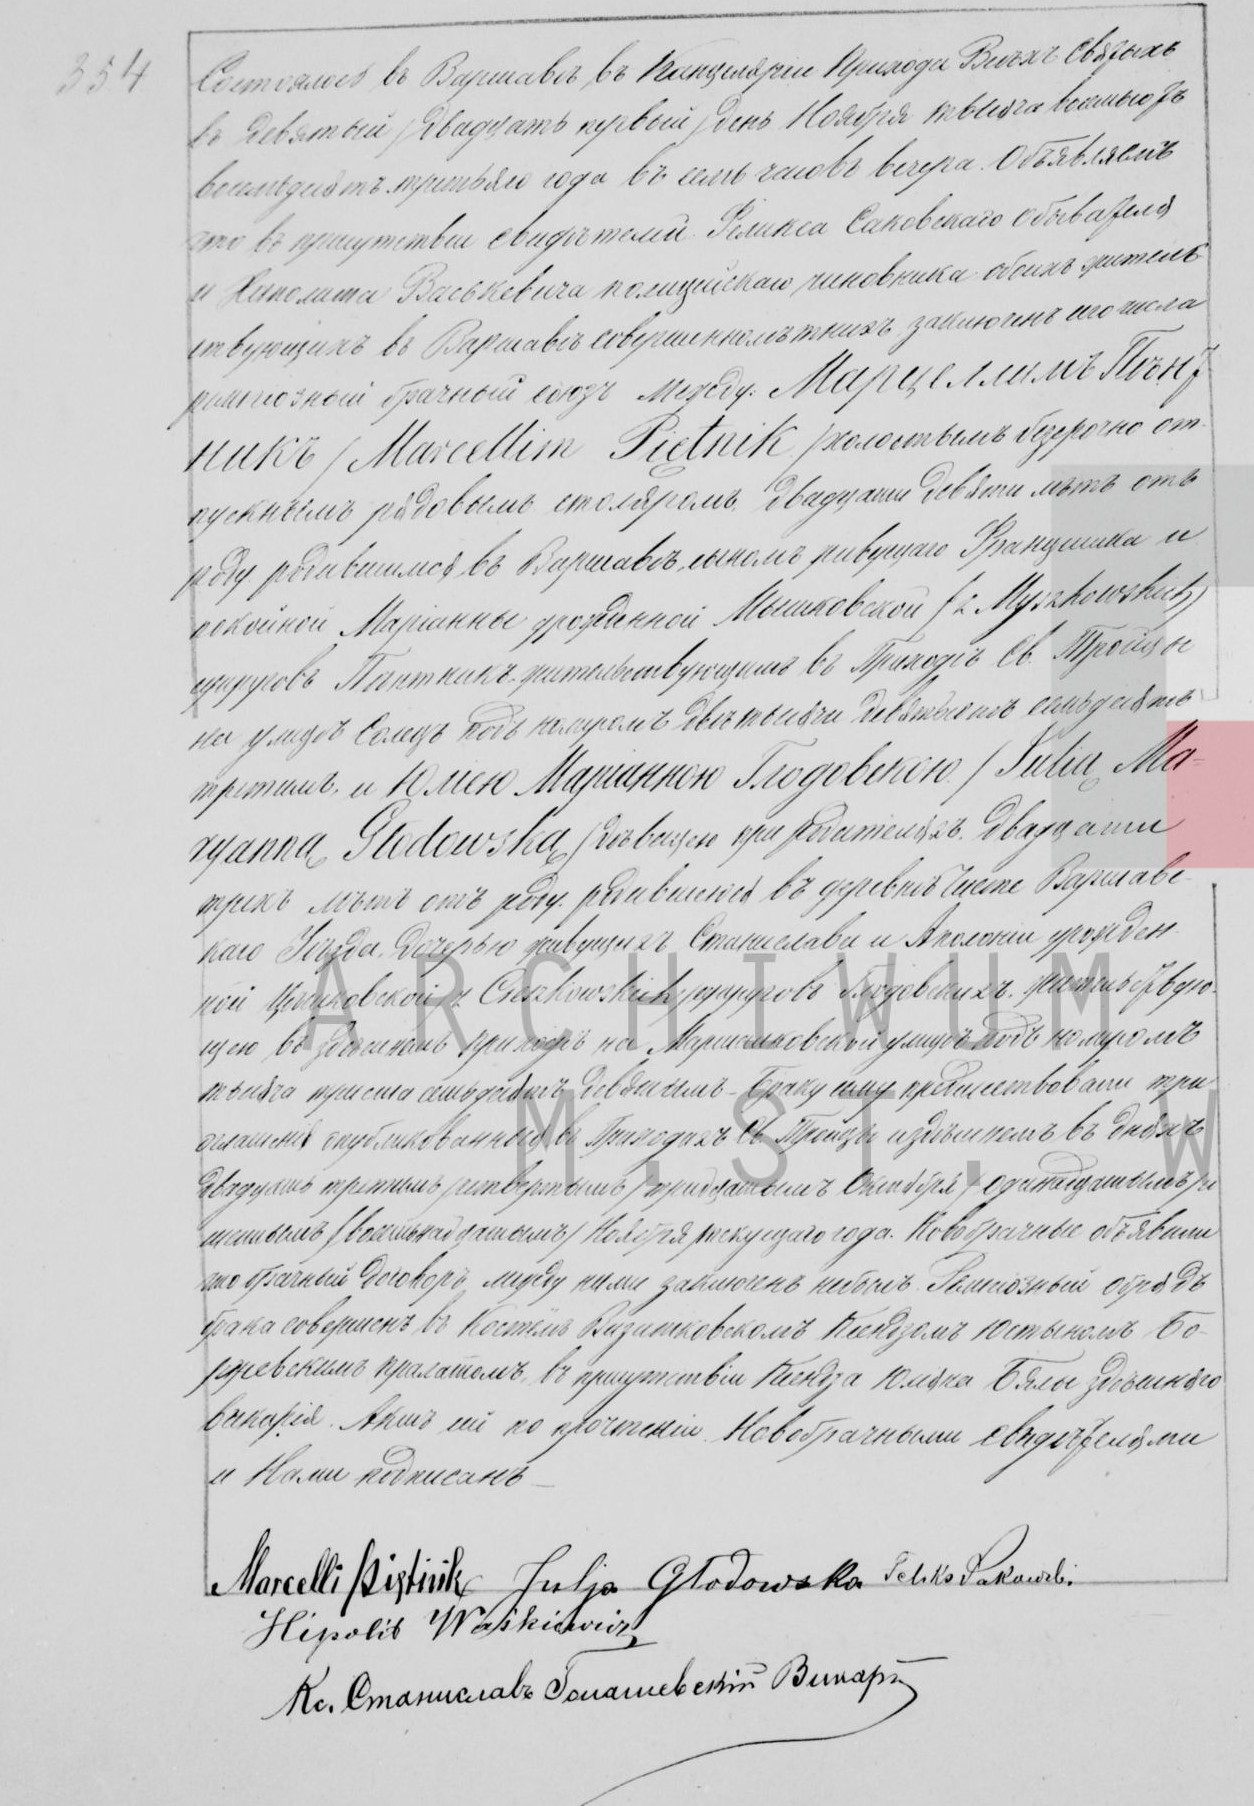 354
Состоялось въ Варшавѣ въ Канцеляріи Прихода Всѣхъ Святыхъ
въ девятый /двадцать первый/ день Ноября тысяча восемьсотъ
восемьдесятъ третьяго года въ семь часовъ вечера. Объявляемъ
что въ присутствіи свидѣтелей Феликса Саковскаго обывателя
и Хиполита Васькевича полицейскаго чиновника обоихъ житель-
ствующихъ въ Варшавѣ совершеннолѣтнихъ, заключенъ сего числа
религіозный брачный союзъ между: Марцеллимъ Пѣнт-
никъ /Marcellim Piętnik/ холостымъ безсрочно от-
пускнымъ рядовымъ столяромъ, двадцати девяти лѣтъ отъ
роду родившимся въ Варшавѣ, сыномъ живущаго Францишка и
покойной Маріанны урожденной Мышковской /z Myszkowskich/
супруговъ Пѣнтникъ жительствующимъ въ Приходѣ Св. Троицы
на улицѣ Солецъ подъ номеромъ двѣ тысячи девятьсотъ семьдесятъ
третьимъ, и Юліею Маріанною Глодовскою /Julią Ma-
ryanną Głodowską/ дѣвицею при родителяхъ, двадцати
трехъ лѣтъ отъ роду, родившеюся въ деревнѣ Чисте Варшавс-
каго Уѣзда, дочерью живущихъ Станислава и Аполоніи урожден-
ной Цѣшковской /z Cieszkowskich/ супруговъ Глодовскихъ, жительствую-
щею въ здѣшнемъ приходѣ на Маршалковской улицѣ подъ номеромъ
тысяча триста семьдесятъ девятымъ. Браку сему предшествовали три
оглашенія опубликованныя въ Приходахъ Св. Троицы и здѣшнемъ въ дняхъ
двадцать третьемъ /четвертымъ/ тридцатымъ Октября /одинадцатымъ/ и
шестымъ /восемьнадцатымъ/ Ноября текущаго года. Новобрачные объявили
что брачный договоръ между ними заключенъ небылъ. Религіозный обрядъ
брака совершенъ въ Костёлѣ Визитковскомъ Ксендзомъ Юстыномъ Бо-
ржевскимъ прелатомъ, въ присутствіи Ксендза Юліяна Бялы здѣшняго
викарія. Актъ сей по прочтеніи Новобрачными свидѣтелями
и Нами подписанъ
Marcelli Piętnik Julja Głodowska Feliks Sakowski
Hipolit Waśkiewicz
Кс. Станиславъ Викарій
ARCHIWUM
M. ST. W